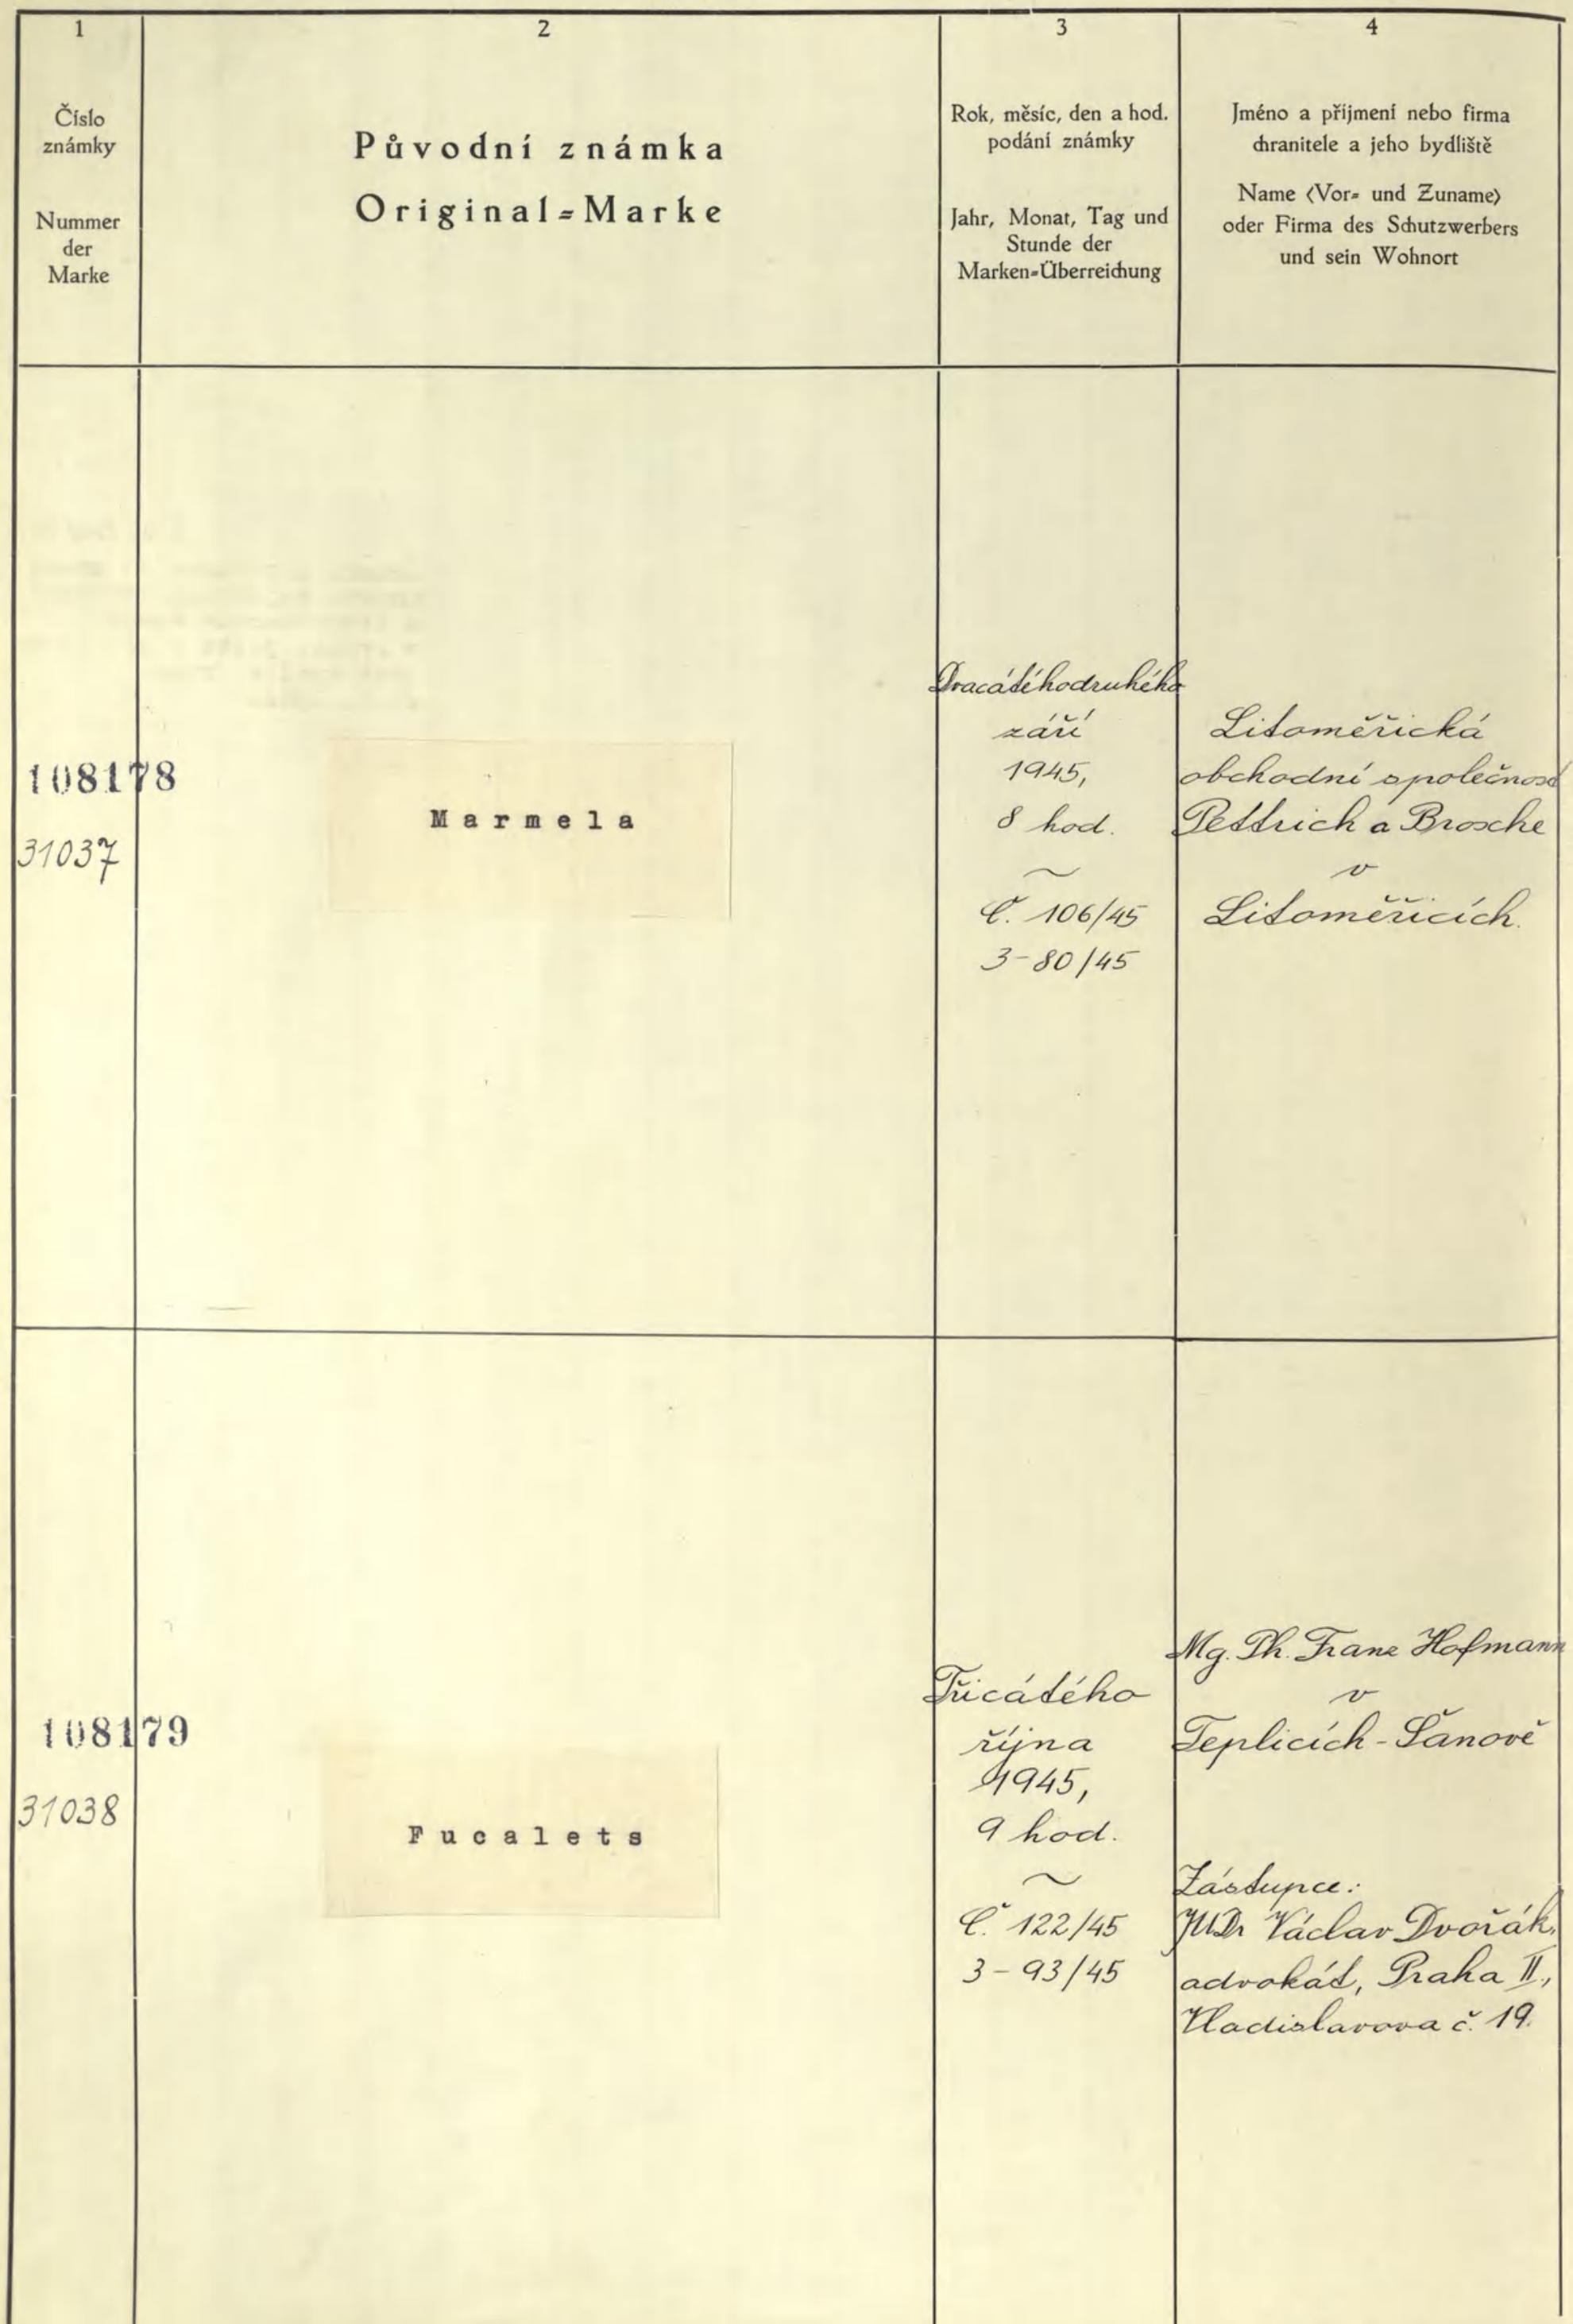 1
Číslo
známky
Nummer
der
Marke
2
Původní známka
Original=Marke
3
Rok, měsíc, den a hod.
podání známky
Jahr, Monat, Tag und
Stunde der
Marken=Überreichung
4
Jméno a přijmení nebo firma
chranitele a jeho bydliště
Name (Vor= und Zuname)
oder Firma des Schutzwerbers
und sein Wohnort
108178
31037
Marmela
Dvacátéhodruhého
září
1945,
8 hod.
~
Č. 106/45
3-80/45
Litoměřická
obchodní společnost
Pettrich a Brosche
v
Litoměřicích.
108179
31038
Fucalets
Třicátého
října
1945,
9 hod.
~
Č. 122/45
3-93/45
Mg. Ph. Franz Hofmann
v
Teplicích-Šanově
Zástupce:
JUDr Václav Dvořák,
advokát, Praha II.,
Vladislavova č. 19.